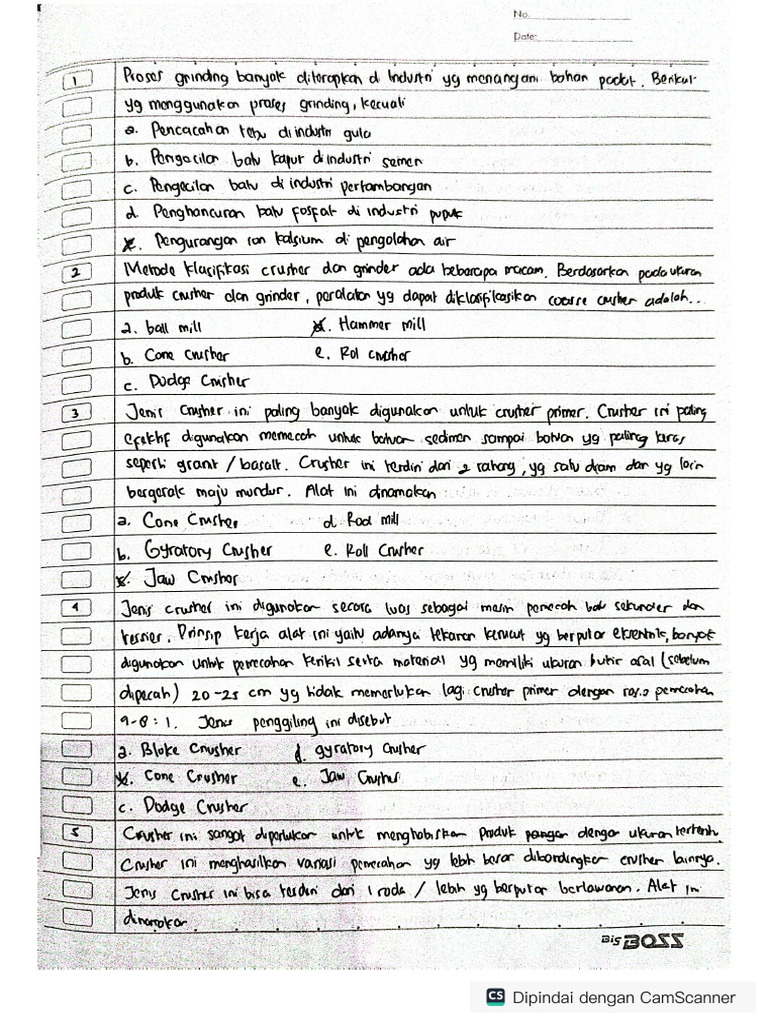 No.
Date:
1 Proses grinding banyak diterapkan di Industri yg menangani bahan padat. Berikut
yg menggunakan proses grinding, kecuali
a. Pencacahan tebu di industri gula
b. Pengecilan batu kapur di industri semen
c. Pengecilan batu di industri pertambangan
d. Penghancuran batu fosfat di industri pupuk
e. Pengurangan ion kalsium di pengolahan air
2 Metode klasifikasi crusher dan grinder ada beberapa macam. Berdasarkan pada ukuran
produk crusher dan grinder, peralatan yg dapat diklasifikasikan coarse crusher adalah...
a. ball mill d. Hammer mill
b. Cone Crusher e. Rol crusher
c. Dodge Crusher
3 Jenis Crusher ini paling banyak digunakan untuk crusher primer. Crusher ini paling
efektif digunakan memecah untuk batuan sedimen sampai batuan yg paling keras
seperti granit / basalt. Crusher ini terdiri dari 2 rahang, yg satu diam dan yg lain
bergerak maju mundur. Alat ini dinamakan
a. Cone Crusher d. Rod mill
b. Gyratory Crusher e. Roll Crusher
c. Jaw Crusher
4 Jenis crusher ini digunakan secara luas sebagai mesin pemecah batu sekunder dan
tersier. Prinsip kerja alat ini yaitu adanya tekanan kerucut yg berputar eksentrik, banyak
digunakan untuk pemecahan kerikil serta material yg memiliki ukuran butir asal (sebelum
dipecah) 20-25 cm yg tidak memerlukan lagi crusher primer dengan rasio pemecahan
: 1. Jenis penggiling ini disebut
a. Blake Crusher d. gyratory Crusher
b. Cone Crusher e. Jaw Crusher
c. Dodge Crusher
5 Crusher ini sangat diperlukan untuk menghabiskan Produk pangan dengan ukuran tertentu.
Crusher ini menghasilkan variasi pemecahan yg lebih besar dibandingkan crusher lainnya.
Jenis Crusher ini bisa terdiri dari 1 roda / lebih yg berputar berlawanan. Alat ini
dinamakan
Big BOSS
CS Dipindai dengan CamScanner